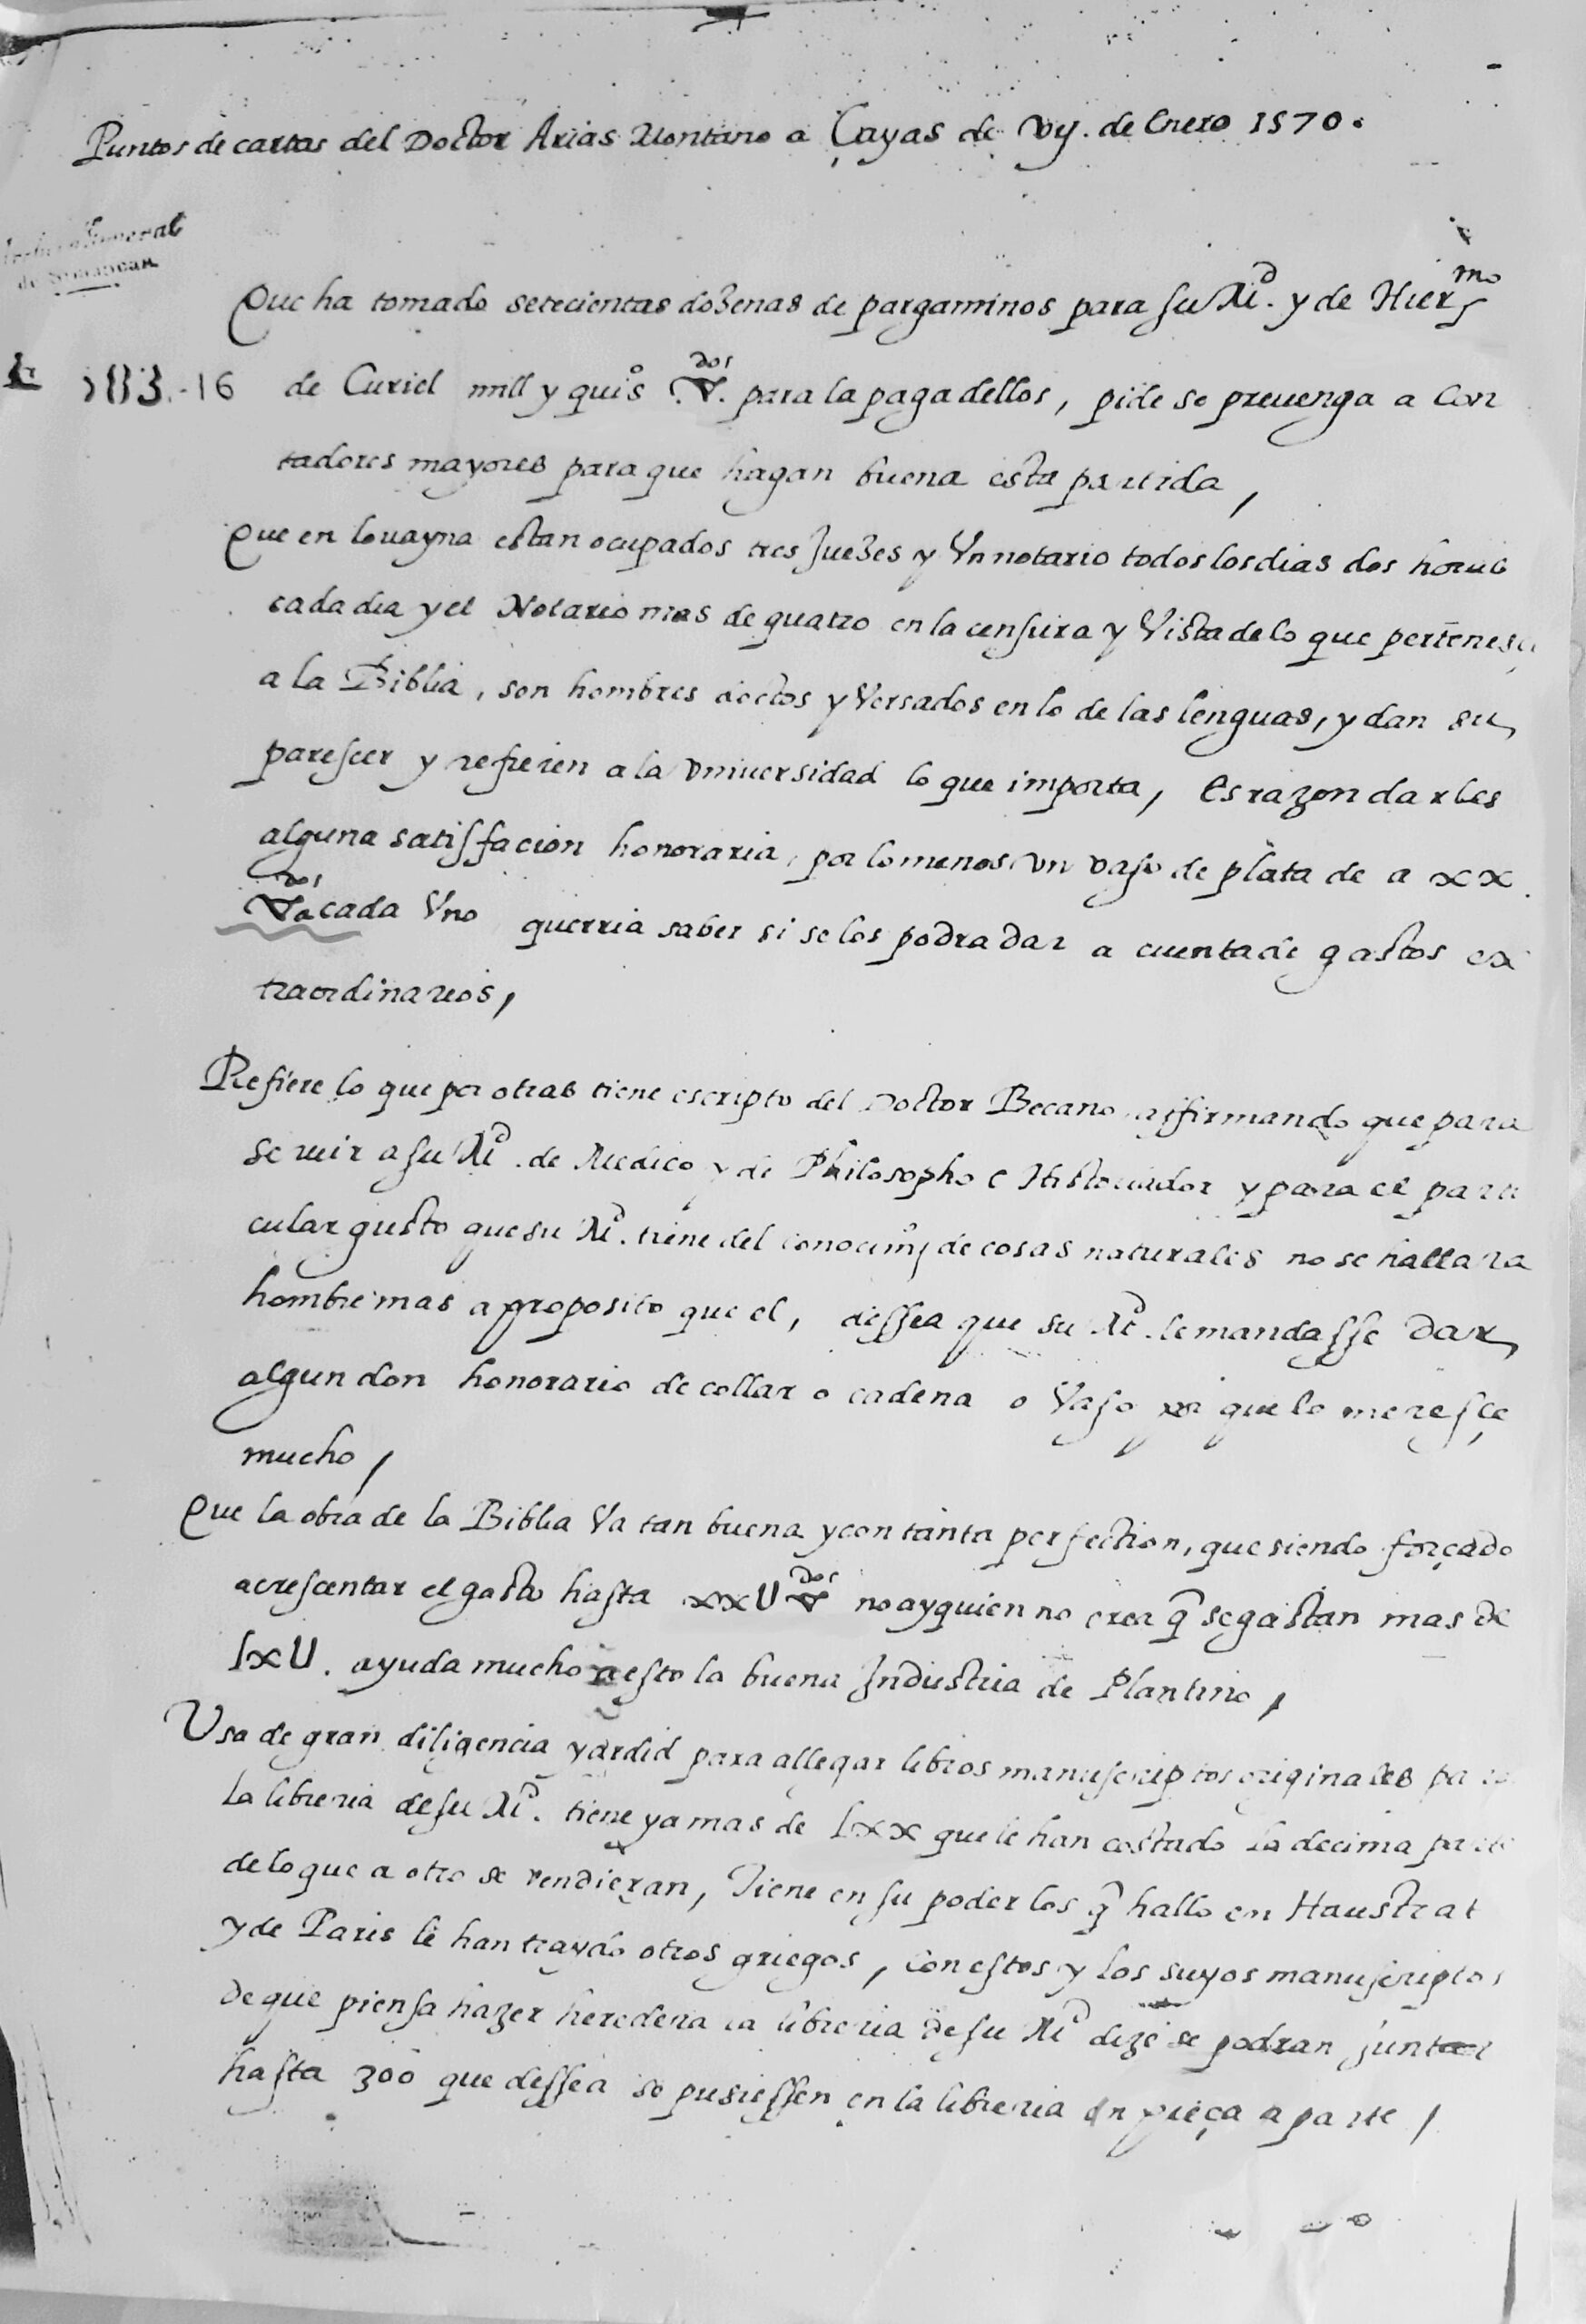 Puntos de cartas del Doctor Arias Montano a Çayas de vij. de Enero 1570.
Archivo General
de Simancas
Que ha tomado setecientas dozenas de pargaminos para su Md. y de Hiermo
583.-16
de Curiel mill y quios dos. para la paga dellos, pide se prevenga a Con
tadores mayores para que hagan buena esta partida,
Que en Lovayna estan ocupados tres Juezes y Un notario todos los dias dos horas
cada dia y el Notario mas de quatro en la censura y Vista de lo que pertenesce
a la Biblia, son hombres doctos y Versados en lo de las lenguas, y dan su
parescer y refieren a la vniuersidad lo que importa, es razon darles
alguna satisfacion honoraria, por lo menos vn vaso de plata de a xx
dos a cada Vno querria saber si se los podra dar a cuenta de gastos ex
traordinarios,
Refiere lo que por otras tiene escripto del Doctor Becano affirmando que para
seruir a su Md. de Medico y de Philosopho e Historiador y para el parti
cular gusto que su Md. tiene del conocimo de cosas naturales no se hallara
hombre mas a proposito que el, dessea que su Md. le mandasse dar
algun don honorario de collar o cadena o Vaso que lo meresçe
mucho,
Que la obra de la Biblia Va tan buena y con tanta perfection, que siendo forçado
acrescentar el gasto hasta xxU dos no ay quien no crea q̃ se gastan mas de
lxU. ayuda mucho a esto la buena Industria de Plantino,
Usa de gran diligencia y ardid para allegar libros manuscriptos originales para
la libreria de su Md. tiene ya mas de lxx que le han costado la decima parte
de lo que a otro se vendieran, Tiene en su poder los q̃ hallo en Haustrat
y de Paris le han traydo otros griegos, con estos y los suyos manuscriptos
de que piensa hazer heredera la libreria de su Md dize se podran juntar
hasta 300 que dessea se pusiessen en la libreria en pieça a parte,